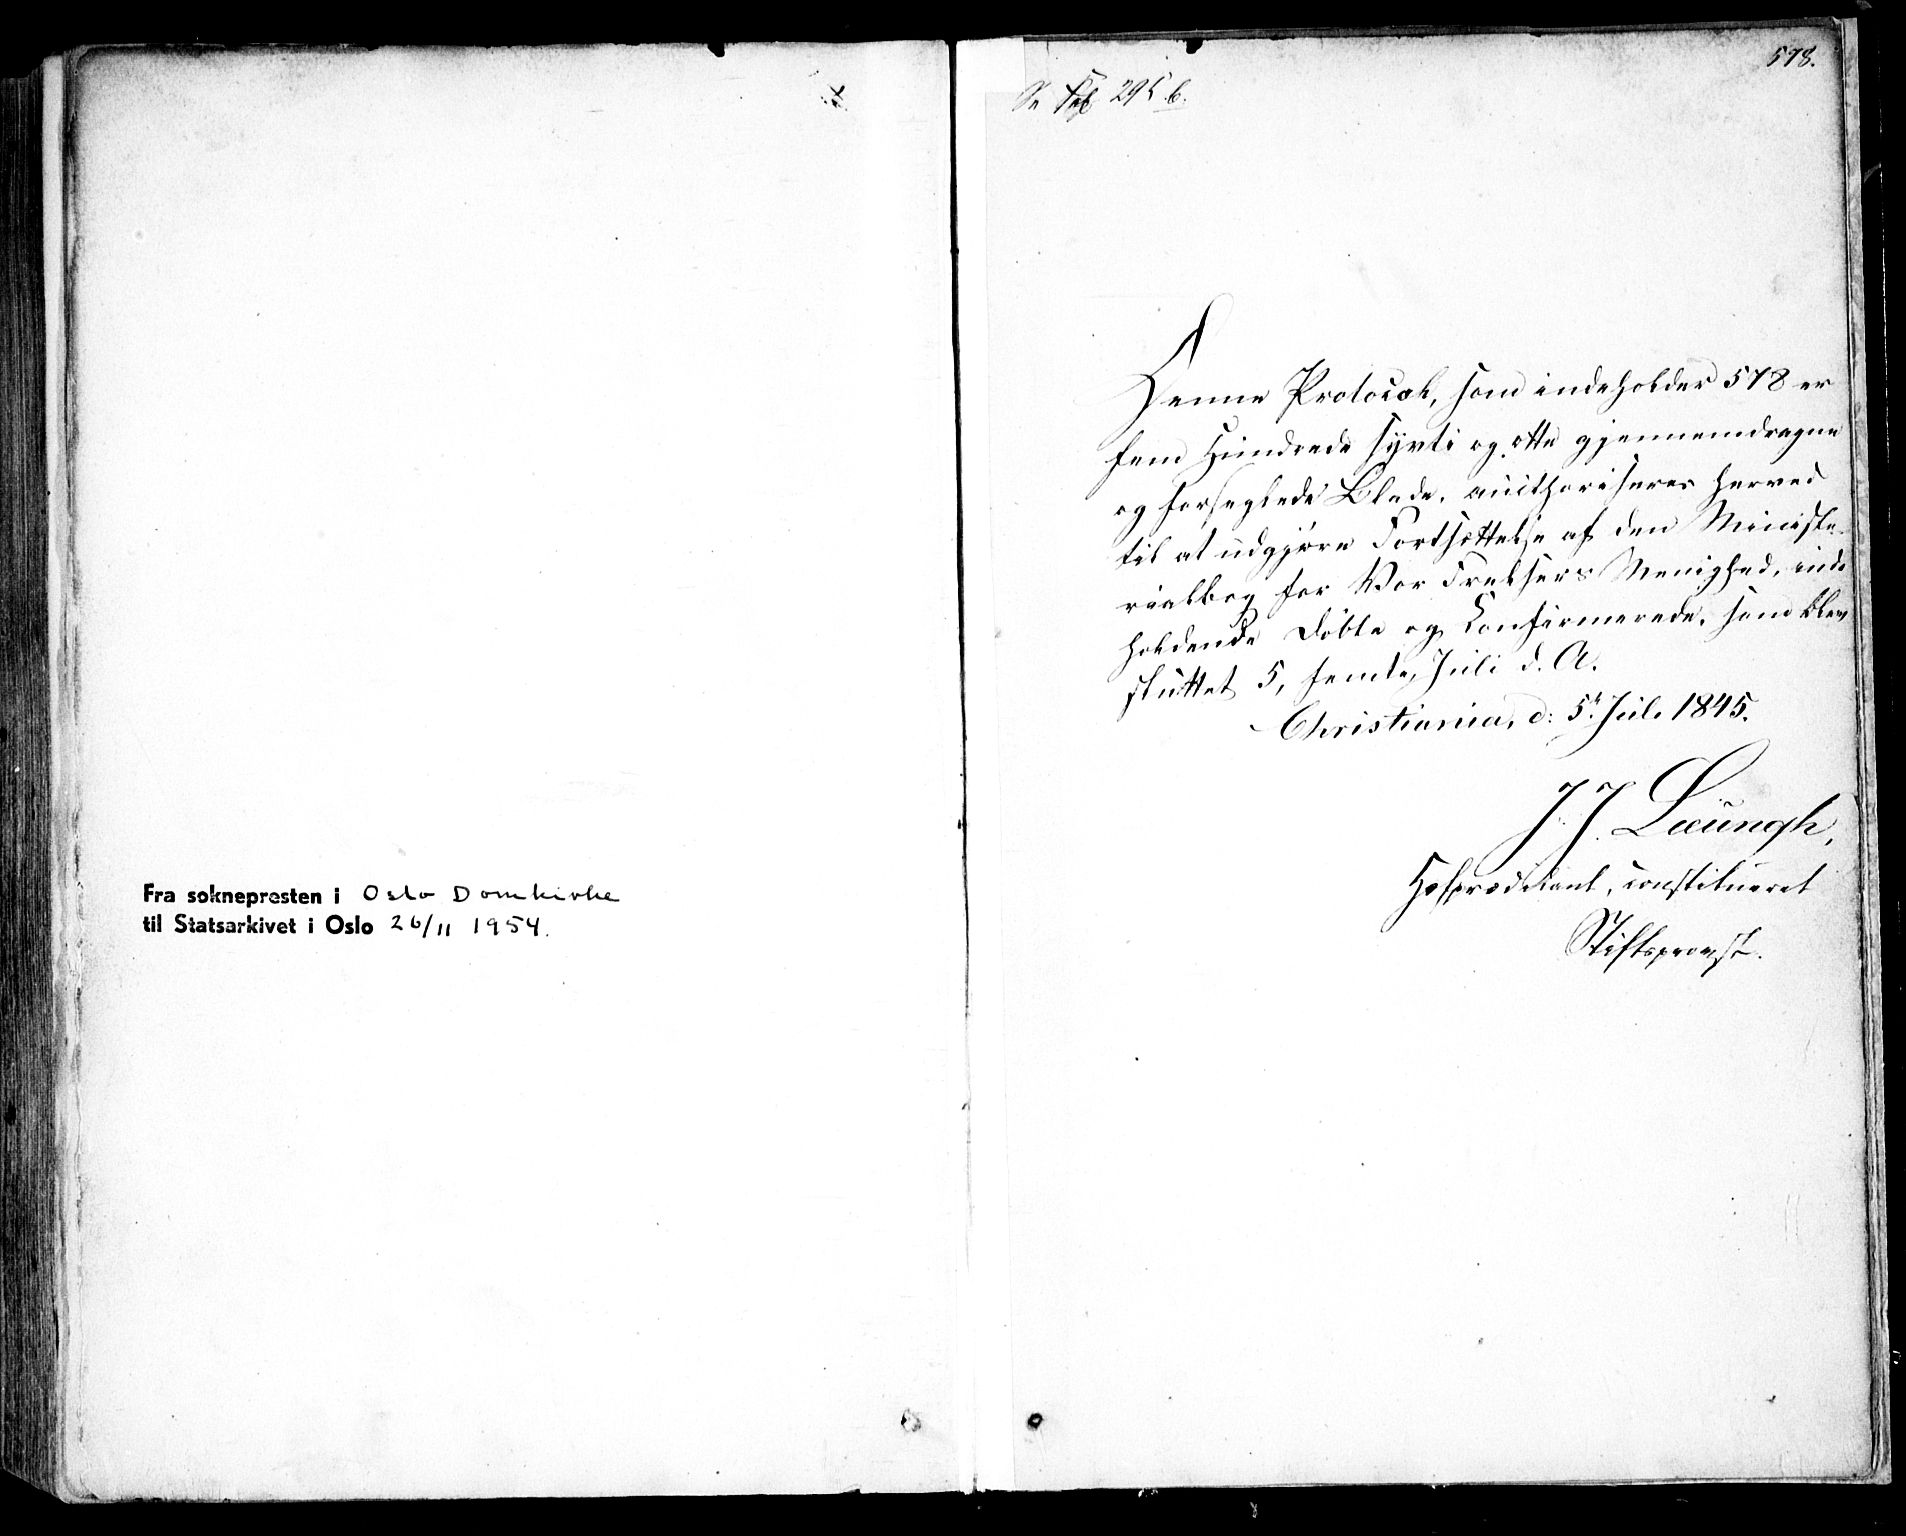 Fra soknepresten i Oslo Domkirke
til Statsarkivet i Oslo 26/11 1954.
578.
Se Fol 295 b.
Denne Protocol, som indeholder 578 er
fem Hundrede sytti og otte gjennemdragne
og forseglede Blade, authoriseres herved
til at udgjøre Fortsættelse af den Ministe-
rialbog for Vor Frelsers Menighed, inde
holdende Döbte og Confirmerede, som blev
sluttet 5, femte, Juli d. A.
Christiania, d: 5t Juli 1845.
J J
Hofprædikant, constitueret
Stiftsprovst.